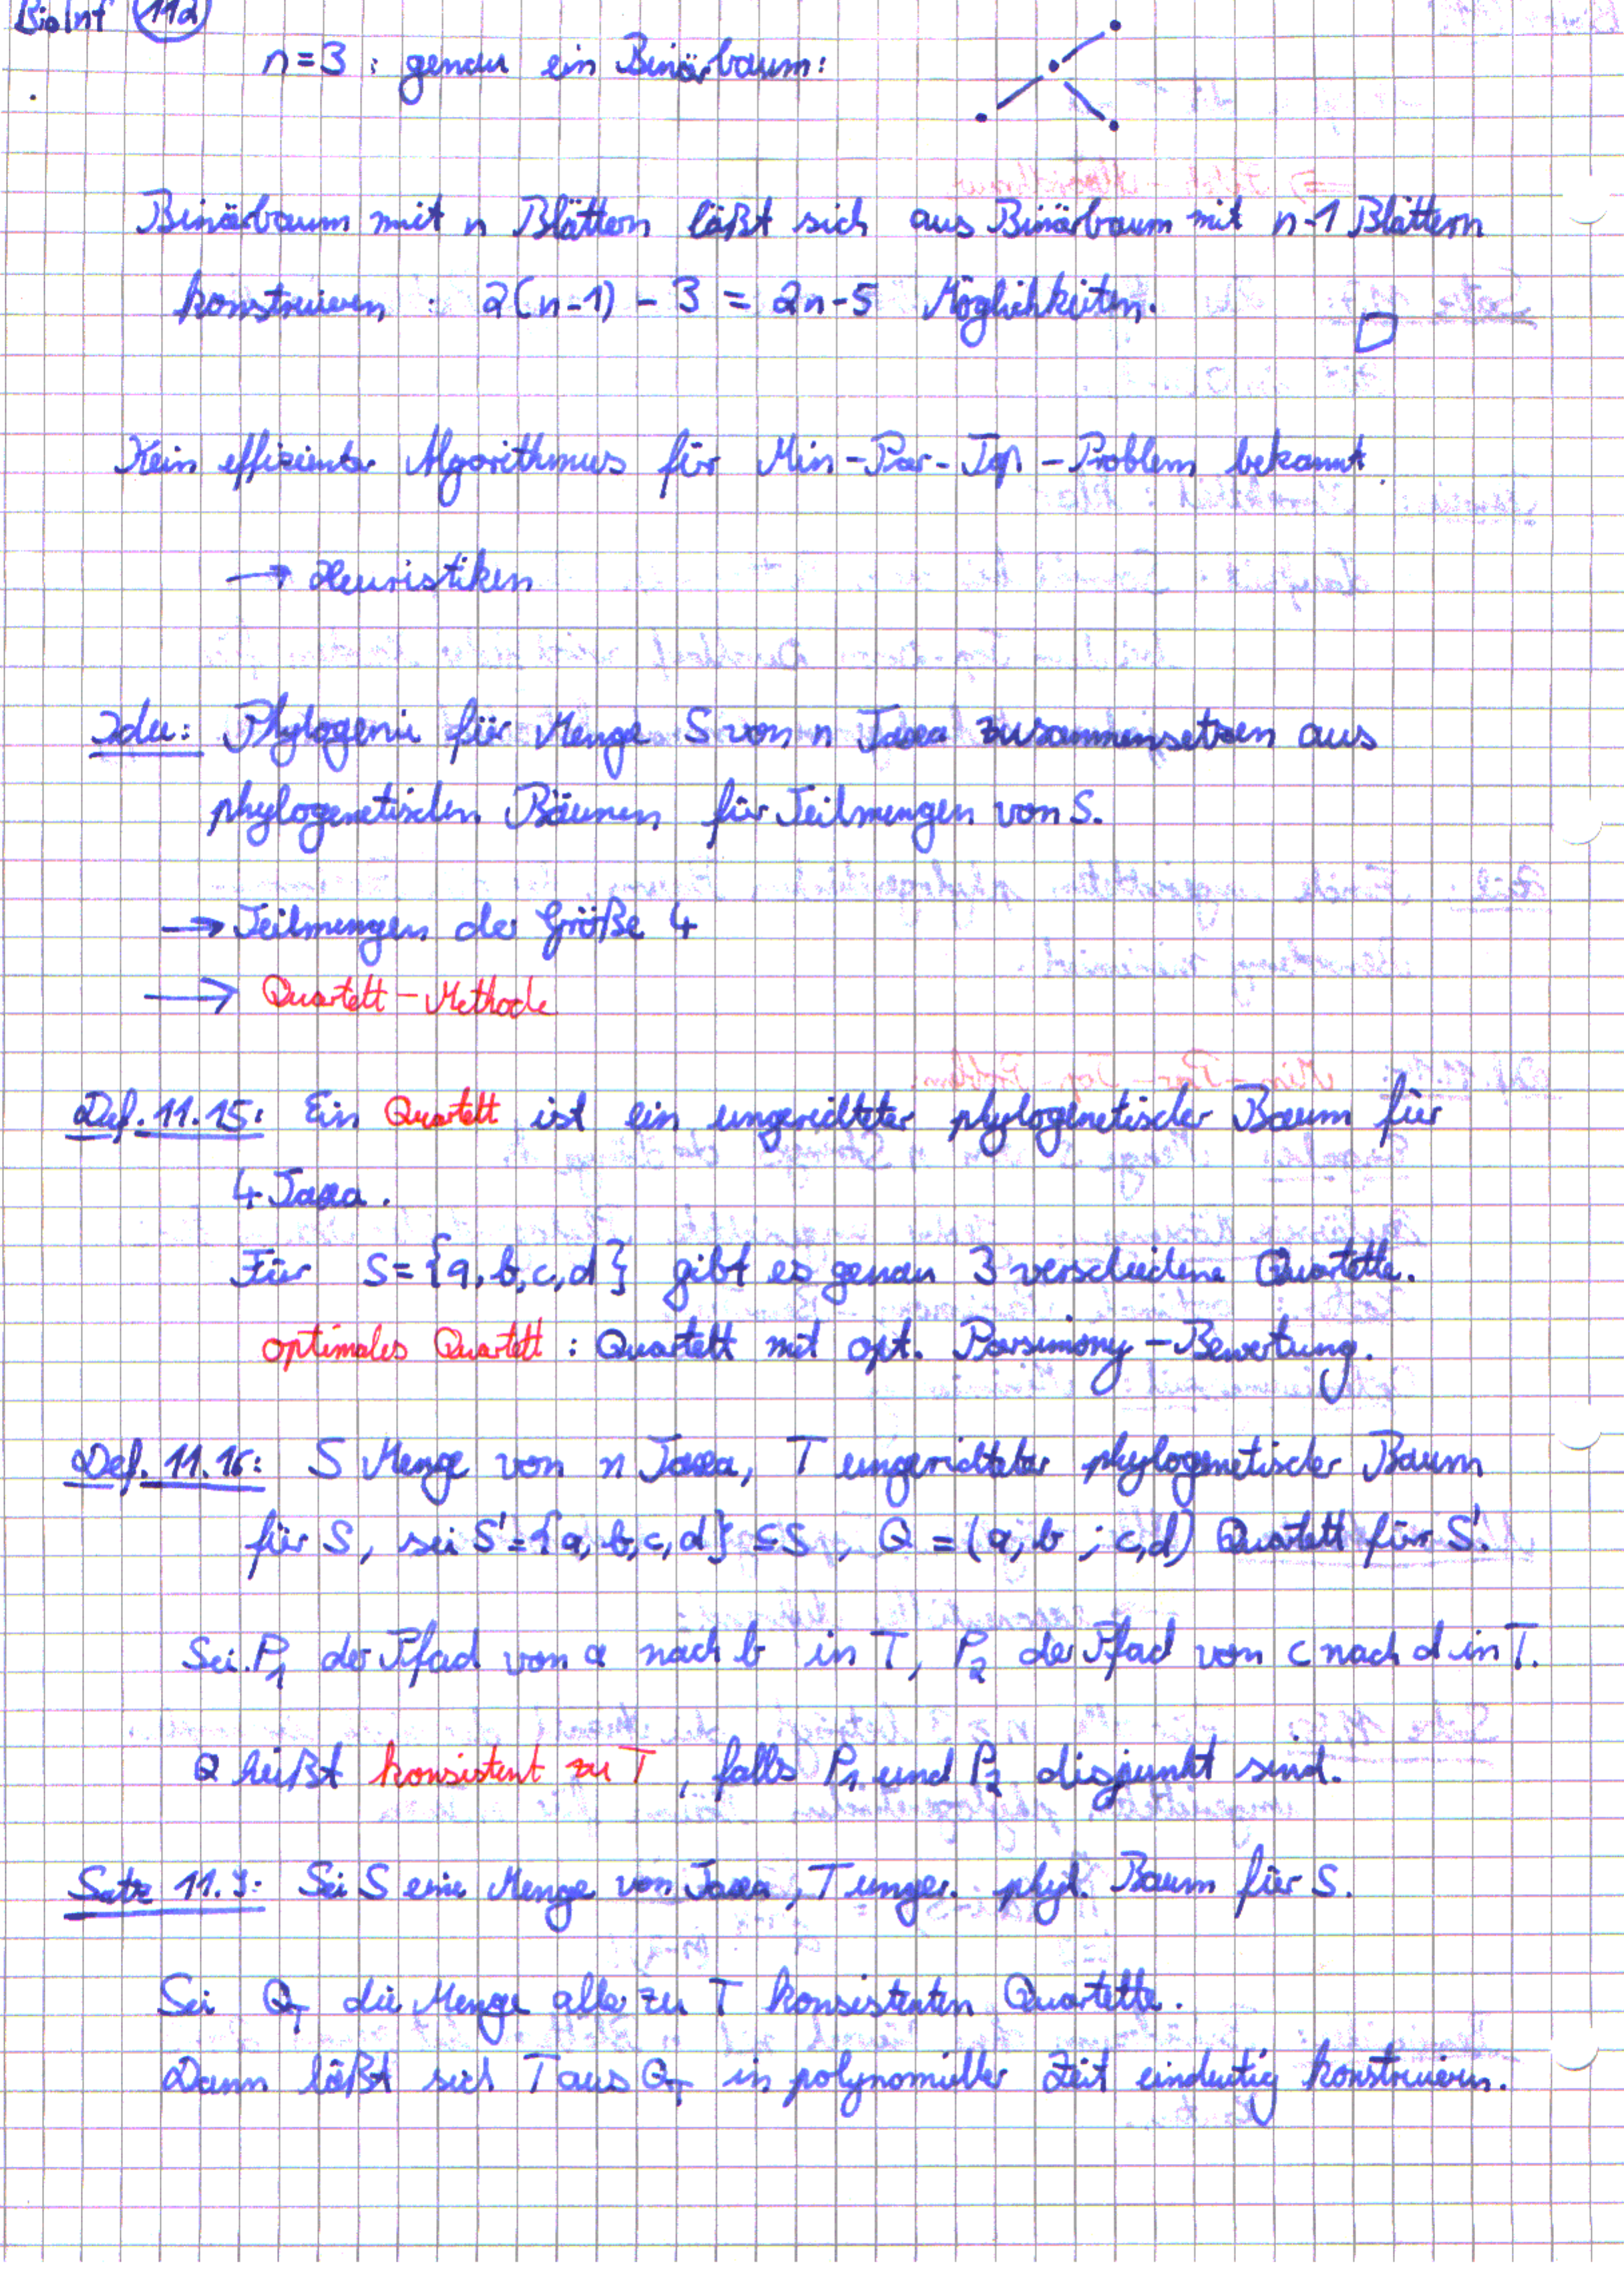 BioInf 11d
n=3 : genau ein Binärbaum:
Binärbaum mit n Blättern läßt sich aus Binärbaum mit n-1 Blättern
konstruieren : 2(n-1) - 3 = 2n-5 Möglichkeiten.
Kein effizienter Algorithmus für Min-Par-Top-Problem bekannt.
→ Heuristiken
Idee: Phylogenie für Menge S von n Taxa zusammensetzen aus
phylogenetischen Bäumen für Teilmengen von S.
→ Teilmengen der Größe 4
→ Quartett-Methode
Def. 11.15: Ein Quartett ist ein ungerichteter phylogenetischer Baum für
4 Taxa.
Für S={a,b,c,d} gibt es genau 3 verschiedene Quartette.
optimales Quartett : Quartett mit opt. Parsimony-Bewertung.
Def. 11.16: S Menge von n Taxa, T ungerichteter phylogenetischer Baum
für S, sei S'={a,b,c,d} ⊆ S, Q = (a,b ; c,d) Quartett für S'.
Sei P₁ der Pfad von a nach b in T, P₂ der Pfad von c nach d in T.
Q heißt konsistent zu T, falls P₁ und P₂ disjunkt sind.
Satz 11.9: Sei S eine Menge von Taxa, T unger. phyl. Baum für S.
Sei Q_T die Menge aller zu T konsistenten Quartette.
Dann läßt sich T aus Q_T in polynomieller Zeit eindeutig konstruieren.